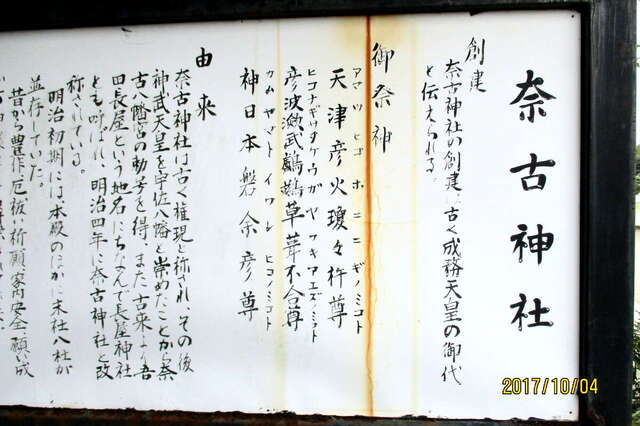 奈古神社
創建
奈古神社の創建は古く成務天皇の御代
と伝えられる
御祭神
アマツヒコホニニギノミコト
天津彦火瓊々杵尊
ヒコナギサタケウガヤフキアエズノミコト
彦波瀲武鸕鷀草葺不合尊
カムヤマトイワレヒコノミコト
神日本磐余彦尊
由来
奈古神社は古く権現と称され、その後
神武天皇を宇佐八幡と崇めたことから奈
古八幡宮の勅号を得、また古来より吾
田長屋という地名にちなんで長屋神社
とも呼ばれ、明治四年に奈古神社と改
称されている。
明治初期には、本殿のほかに末社八社が
並存していた。
昔から豊作、厄祓い祈願、家内安全、願い成
2017/10/04